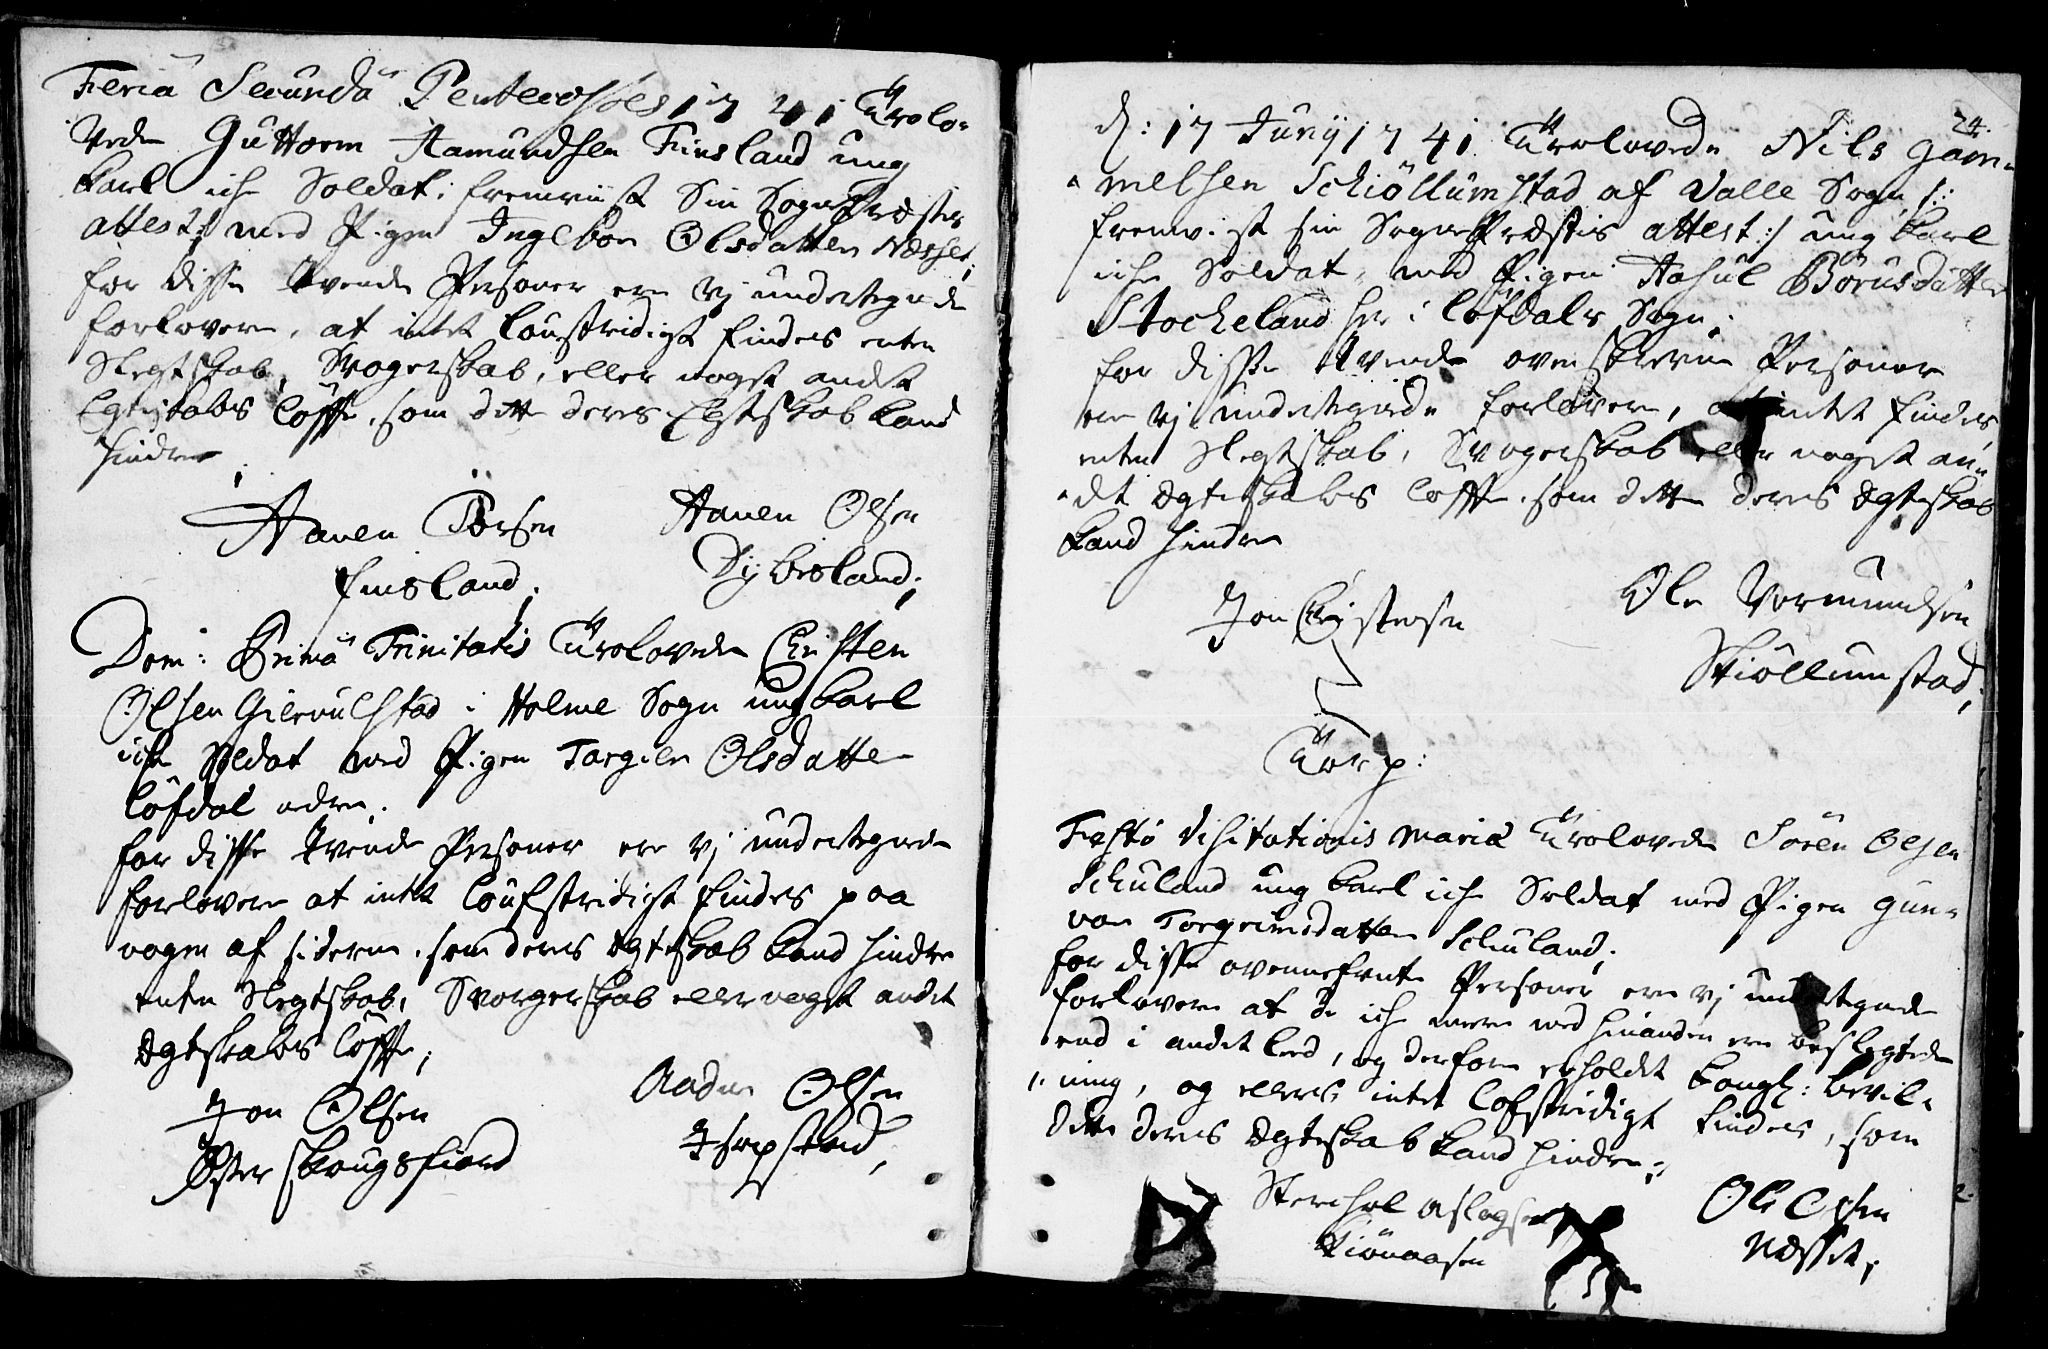 Feria Secunda Pentecostes 1741 Trolo-
vede Guttorm Aamundsen Finsland ung
karl iche Soldat: fremviist Sin Sogne Præstes
attest: med Pigen Ingebor Olsdatter Næsset;
for disse tvende Personer ere vj undertegnede
forlovere, at intet loustridigt findes enten
Slegtskab, Svogerskab, eller noget andet
Egteskabs löffte, som dette deres Egteskab kand
hindre;
Aanen Börsen
Finsland;
Aanen Olsen
Dybesland;
Dom: Prima Trinitatis Trolovede Christen
Olsen Gierulstad i Holme Sogn ung karl
iche Soldat med Pigen Torgile Olsdatter
Löfdal nedre;
for disse tvende Personer ere vj undertegnede
forlovere at intet loufstridigt findes paa
nogen af siderne, som deres Egteskab kand hindre
enten Slegtskab, Svogerskab eller noget andet
Egteskabs löffte;
Jon Olsen
Öster Skougsfiord
Olsen
24.
d: 17 Junij 1741 Trolovede Nils Gam-
melsen Schiöllumstad af Valle Sogn /:
fremvist sin Sogne Præstes attest :/ ung karl
iche Soldat, med Pigen Aasul Börusdatter
Stockeland her i Löfdals Sogn;
for disse tvende ovenskrevne Personer
ere vj undertegnede forlovere, at intet findes
enten Slegtskab, Svogerskab eller noget an-
det Egteskabs löffte, som dette deres Egteskab
kand hindre
Jon Christensen
Torp:
Ole Vermundsen
Skiöllumstad;
Festo Visitationis Mariæ Trolovede Sören Olsen
Schuland ung karl iche Soldat med Pigen Gun-
vor Torgrimsdatter Schuland;
for disse ovennefnte Personer ere vj undertegnede
forlovere at de iche mere med hinanden ere beslegtede
end i andet leed, og derfore erholdet kongl: bevil-
ning, og ellers intet lofstridigt findes, som
dette deres Egteskab kand hindre;
Aslagsen
Ole Olsen
Næsset;